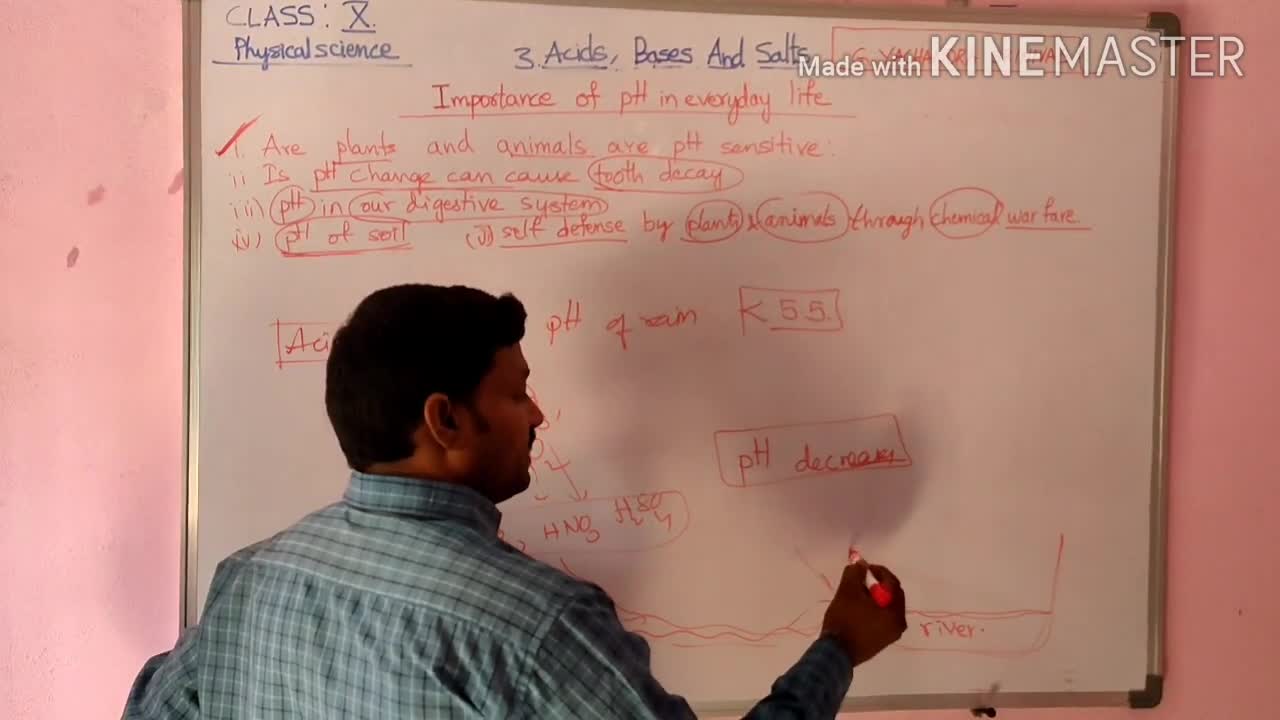 CLASS: X.
Physical science
3. Acids, Bases And Salts
Made with KINEMASTER
Importance of pH in everyday life
i. Are plants and animals are pH sensitive:
ii Is pH change can cause tooth decay
iii) pH in our digestive system
iv) pH of soil (v) self defense by plants & animals through chemical war fare.
pH of rain < 5 5.
pH decreases
HNO3 H2SO4
river.